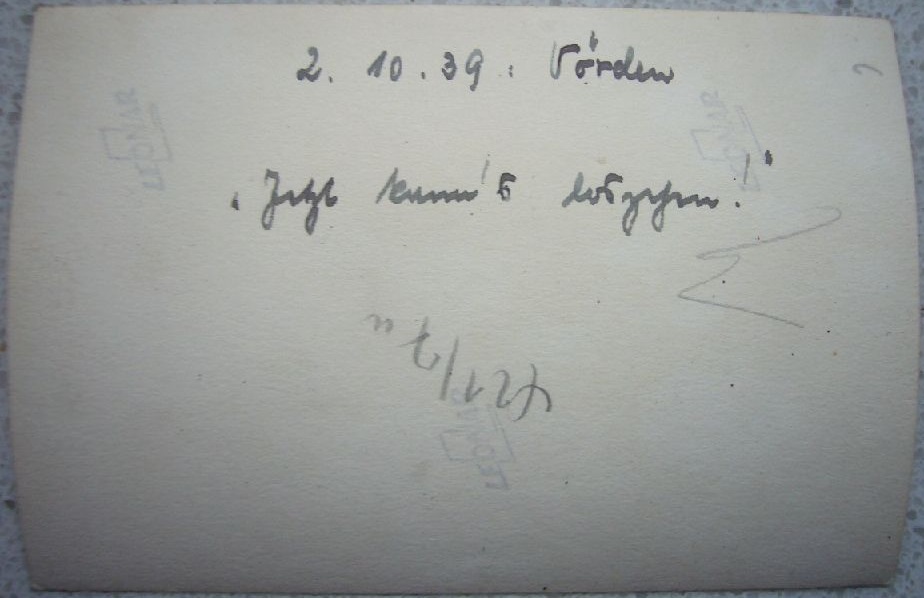 2. 10. 39. Vörden
„Jetzt kann's losgehen!"
LEONAR
LEONAR
LEONAR